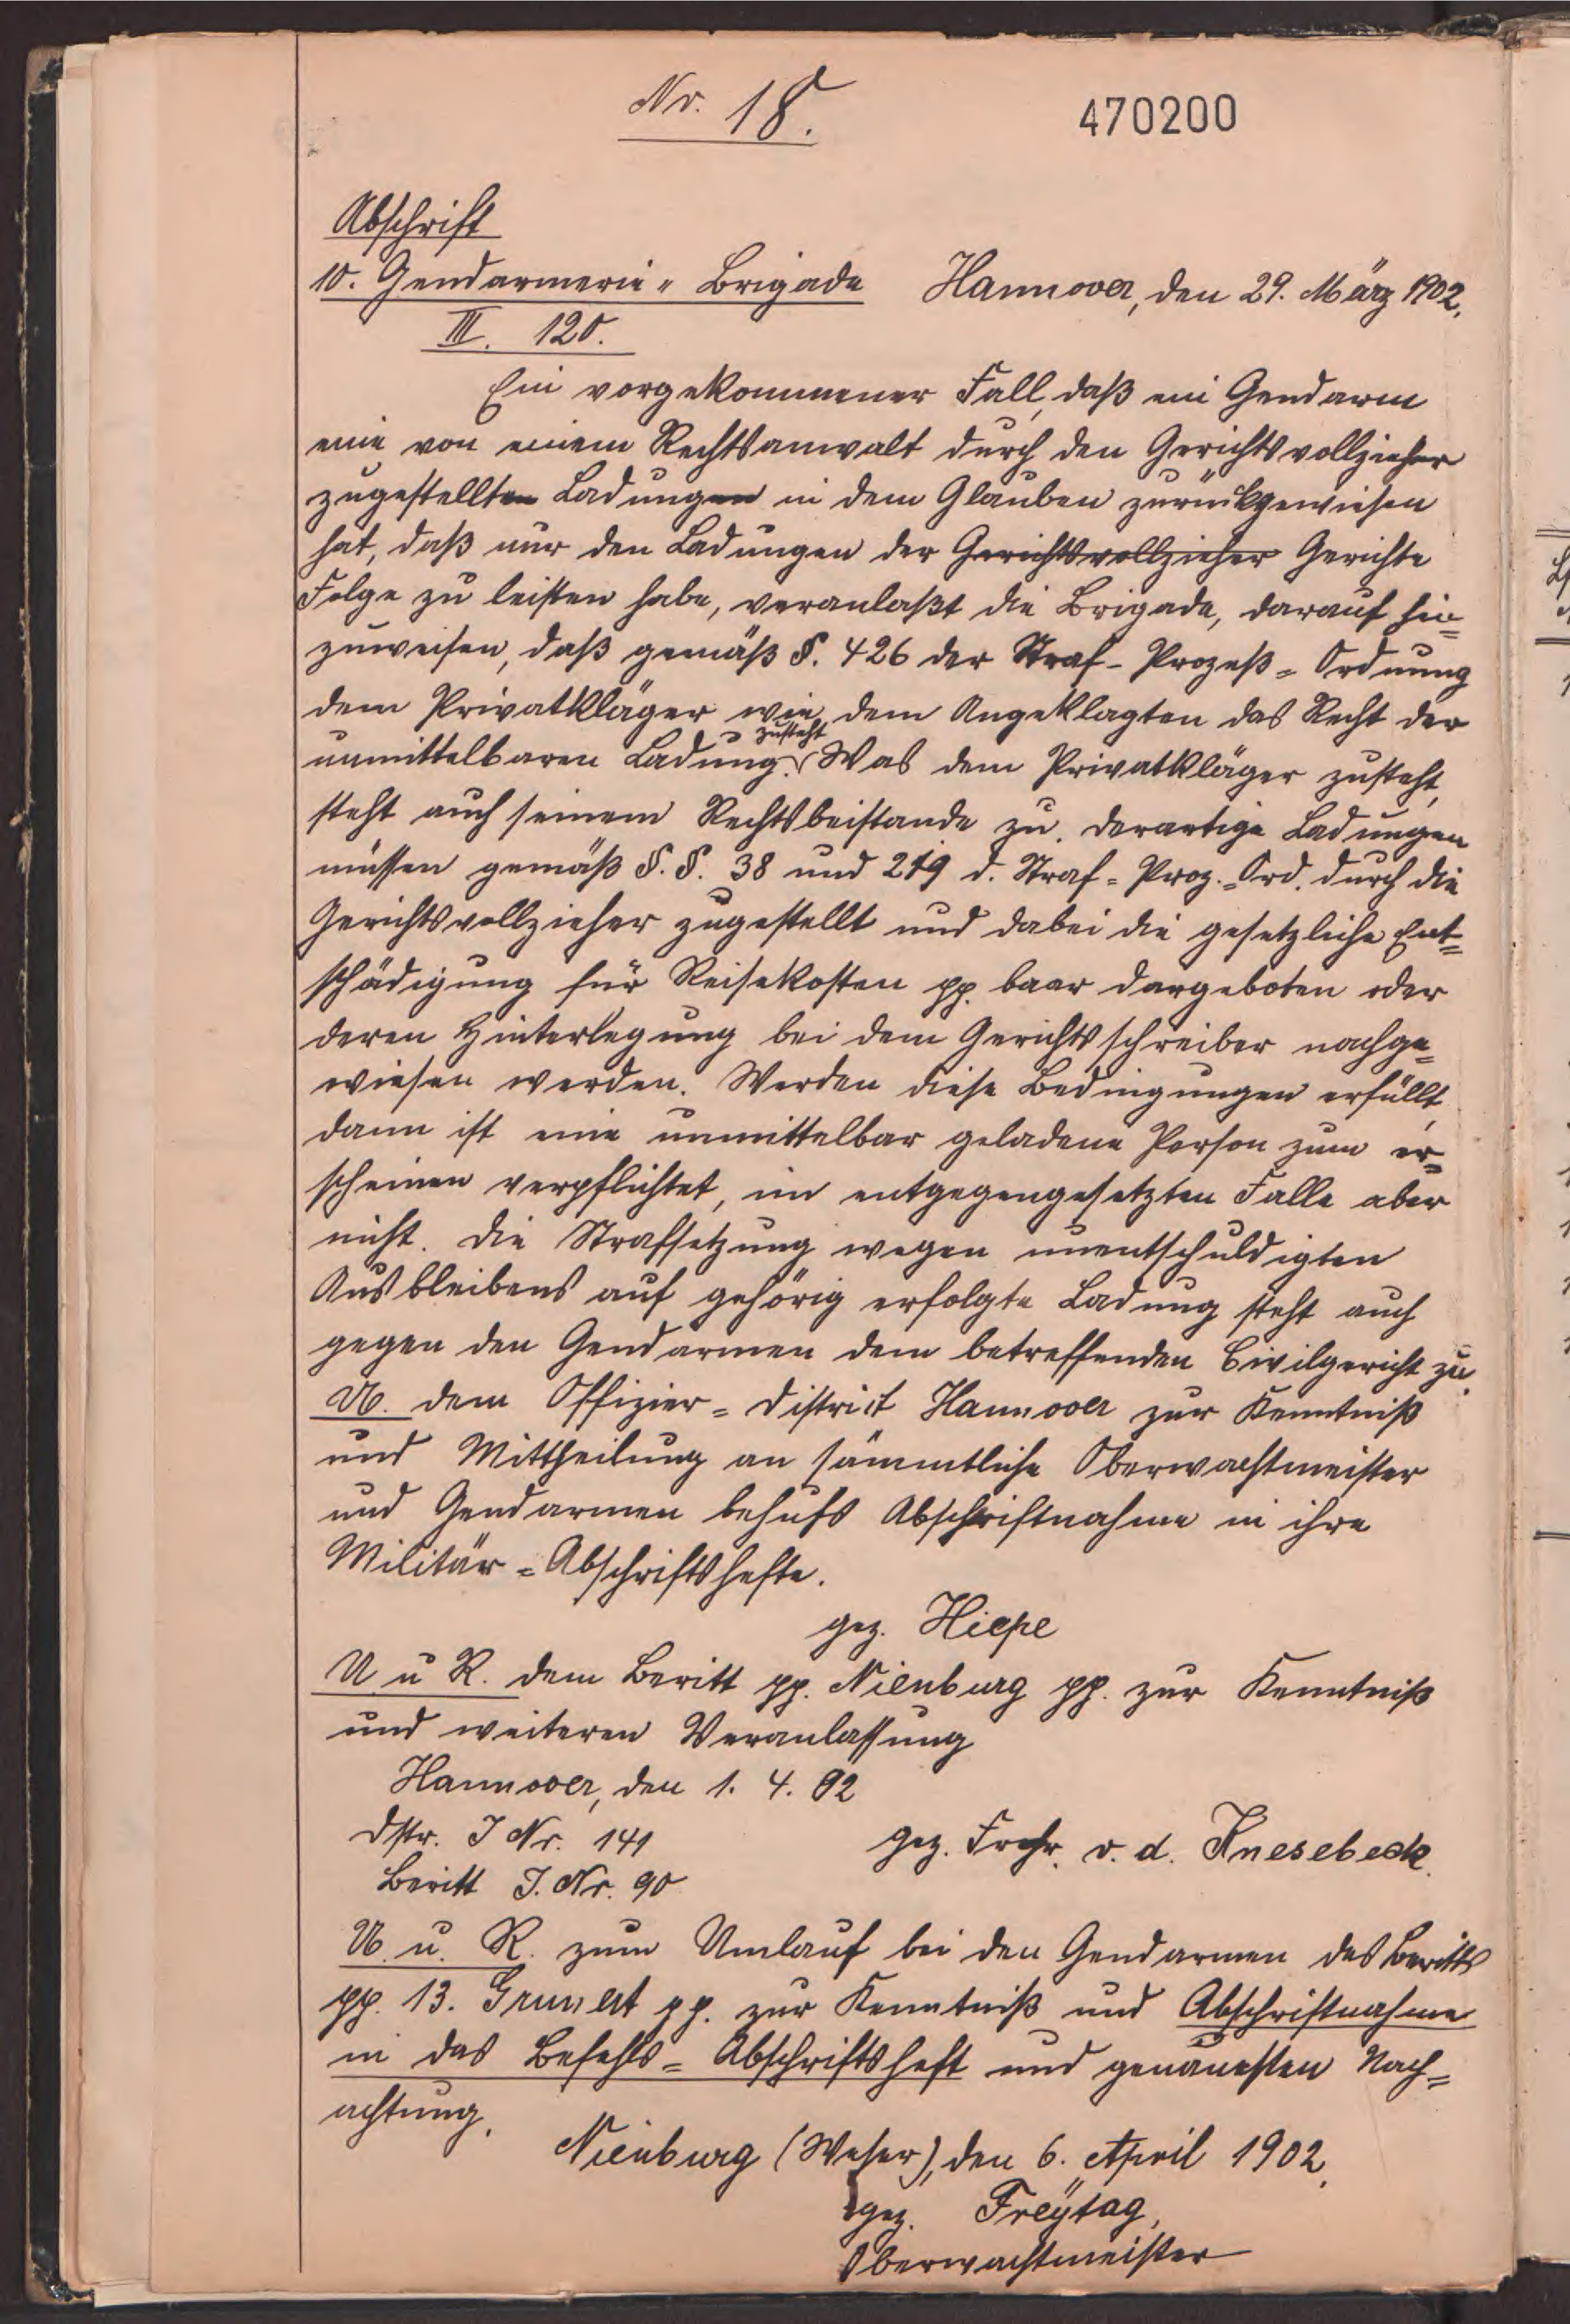 Nr. 18.
470200
Abschrift
10. Gendarmerie-Brigade Hannover, den 29. März 1902.
III. 120.
Ein vorgekommener Fall, daß ein Gendarm
eine von einem Rechtsanwalt durch den Gerichtsvollzieher
zugestellten Ladungen in dem Glauben zurückgewiesen
hat, daß nur den Ladungen der Gerichtsvollzieher Gerichte
Folge zu leisten habe, veranlaßt die Brigade, darauf hin=
zuweisen, daß gemäß §. 426 der Straf-Prozeß=Ordnung
dem Privatkläger wie dem Angeklagten das Recht der
unmittelbaren Ladung zusteht. Was dem Privatkläger zusteht,
steht auch seinem Rechtsbeistande zu. Derartige Ladungen
müssen gemäß §.§. 38 und 219 d. Straf=Proz.=Ord. durch die
Gerichtsvollzieher zugestellt und dabei die gesetzliche Ent=
schädigung für Reisekosten pp. baar dargeboten oder
deren Hinterlegung bei dem Gerichtsschreiber nachge=
wiesen werden. Werden diese Bedingungen erfüllt,
dann ist eine unmittelbar geladene Person zum er=
scheinen verpflichtet, im entgegengesetzten Falle aber
nicht. Die Strafsetzung wegen unentschuldigten
Ausbleibens auf gehörig erfolgte Ladung steht auch
gegen den Gendarmen dem betreffenden Civilgericht zu.
U. dem Offizier=District Hannover zur Kenntniß
und Mittheilung an sämmtliche Oberwachtmeister
und Gendarmen behufs Abschriftnahme in ihre
Militär=Abschriftshefte.
gez. Hiepe
U u R. dem Beritt pp. Nienburg pp. zur Kenntniß
und weiteren Veranlassung
Hannover, den 1. 4. 02
Dstr. J Nr. 141
gez. Frhr. v. d. Knesebeck.
Beritt J. Nr. 90
U. u. R. zum Umlauf bei den Gendarmen des Beritts
pp. 13. Grunert pp. zur Kenntniß und Abschriftnahme
in das Befehls=Abschriftsheft und genauesten Nach=
achtung.
Nienburg (Weser), den 6. April 1902.
gez. Freÿtag,
Oberwachtmeister